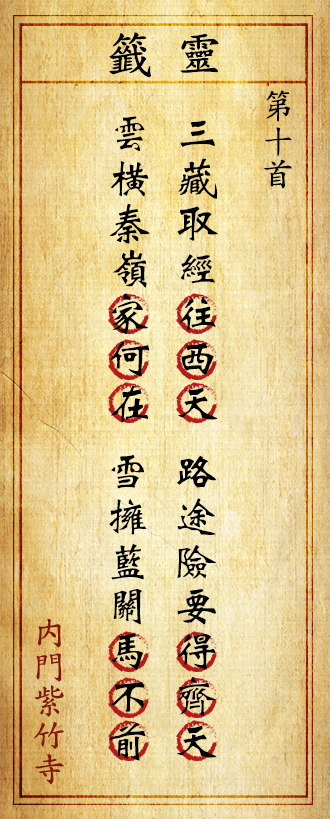 靈籤
第十首
三藏取經往西天
路途險要得齊天
雲橫秦嶺家何在
雪擁藍關馬不前
内門紫竹寺